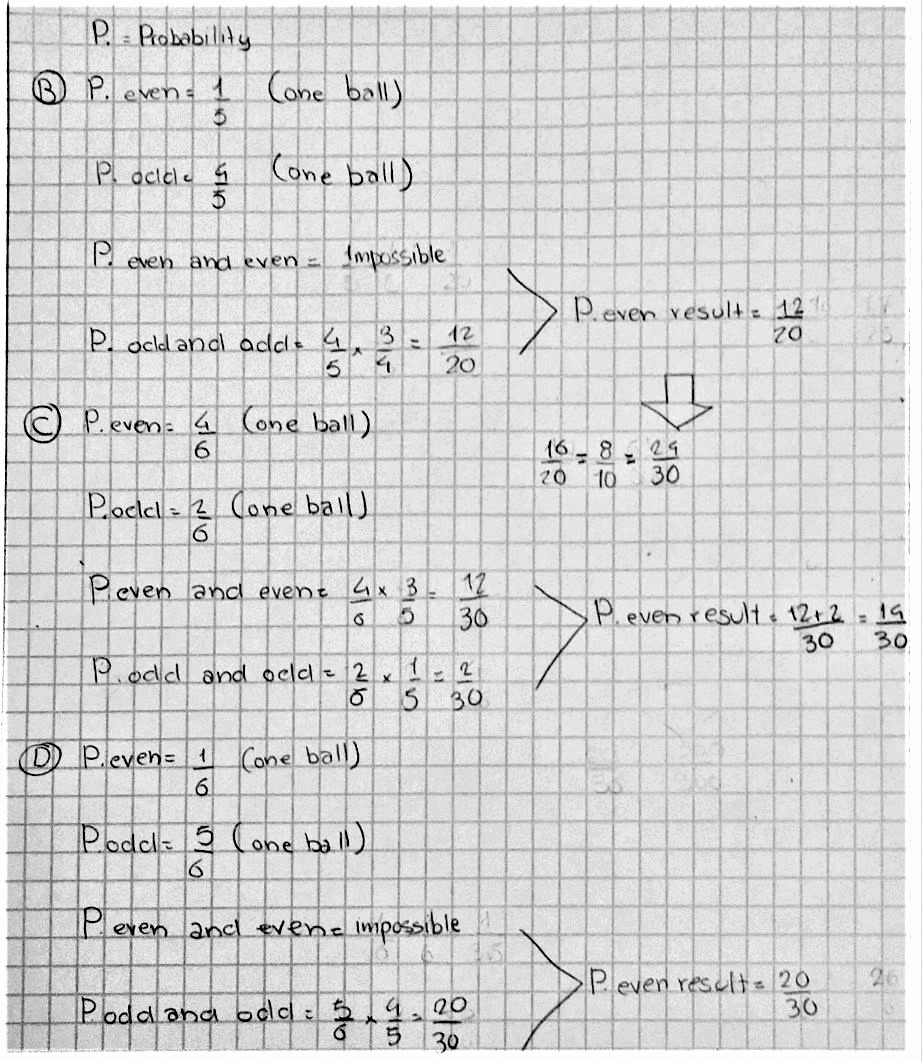 P. = Probability
Ⓑ P. even = 1/5 (one ball)
P. odd = 4/5 (one ball)
P. even and even = Impossible
P. odd and odd = 4/5 × 3/4 = 12/20
P. even result = 12/20
16/20 = 8/10 = 24/30
Ⓒ P. even = 4/6 (one ball)
P. odd = 2/6 (one ball)
P even and even = 4/6 × 3/5 = 12/30
P. odd and odd = 2/6 × 1/5 = 2/30
P. even result = 12+2/30 = 14/30
Ⓓ P. even = 1/6 (one ball)
P. odd = 5/6 (one ball)
P. even and even = impossible
P. odd and odd = 5/6 × 4/5 = 20/30
P. even result = 20/30